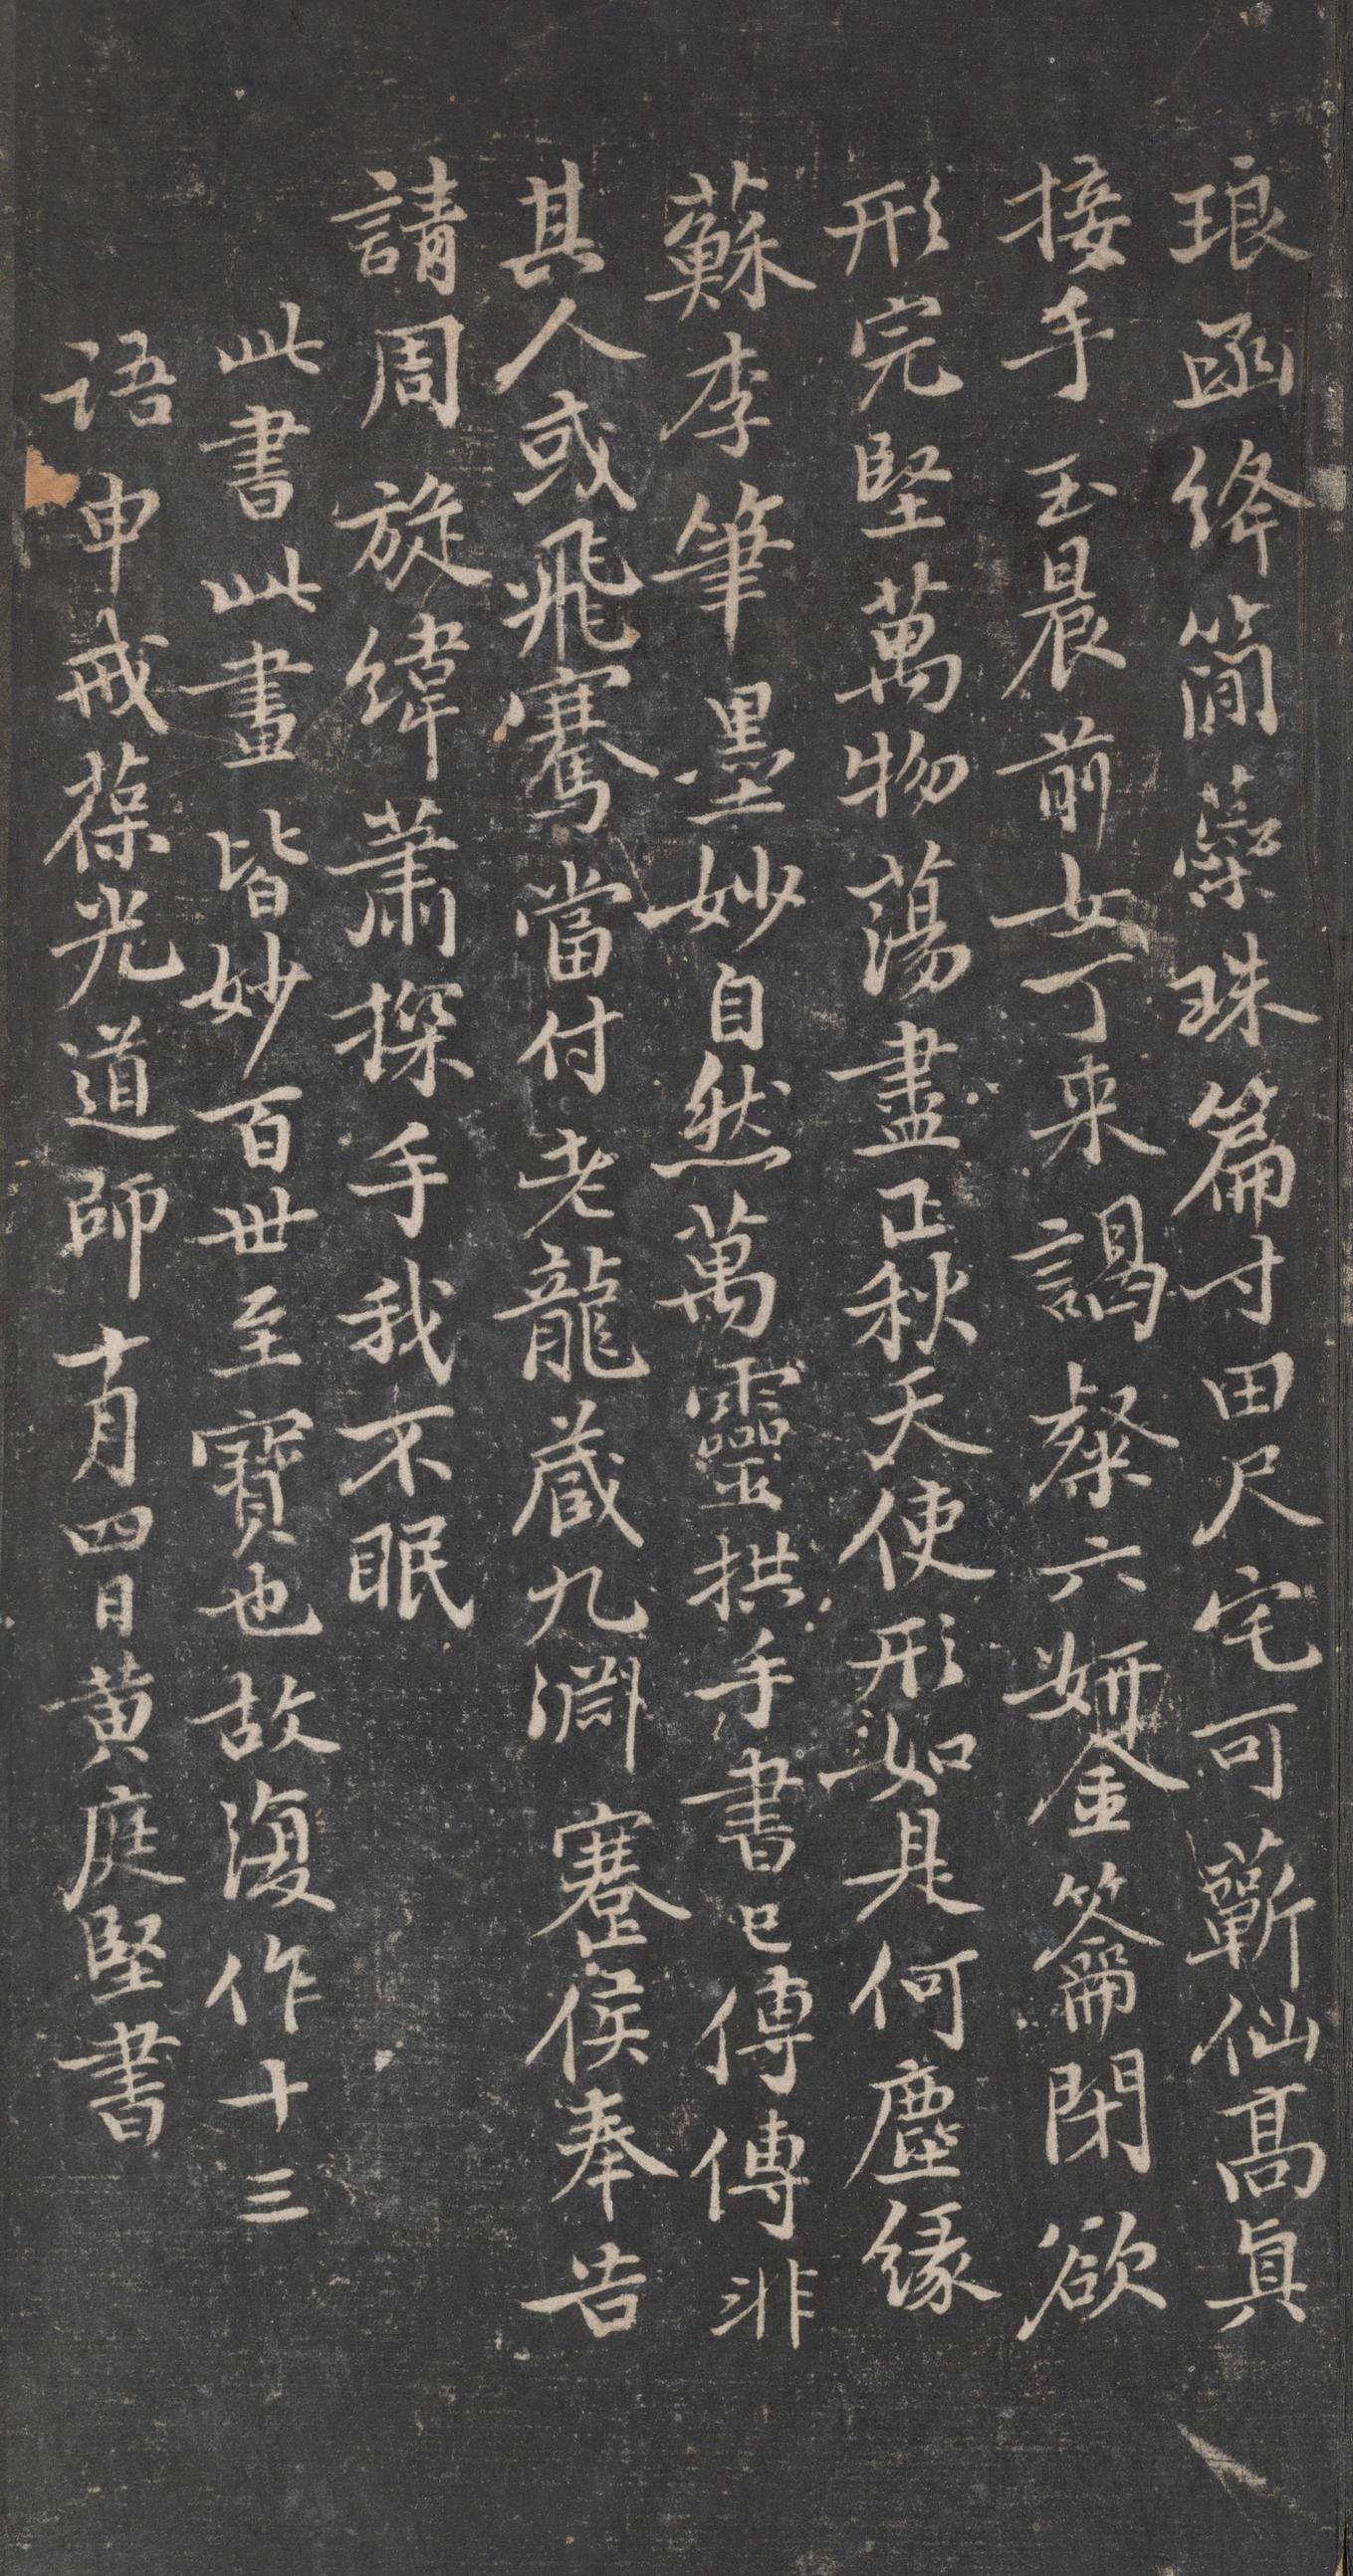 琅函絳簡蘂珠篇寸田尺宅可蘄仙高真
接手玉晨前女丁來謁粲六妍金籥閉欲
形完堅萬物蕩盡正秋天使形如是何塵緣
蘇李筆墨妙自然萬靈拱手書已傳傳非
其人或飛騫當付老龍藏九淵蹇侯奉告
請周旋緯蕭探手我不眠
此書此畫皆妙百世至寶也故復作十三
語申戒葆光道師十月四日黄庭堅書